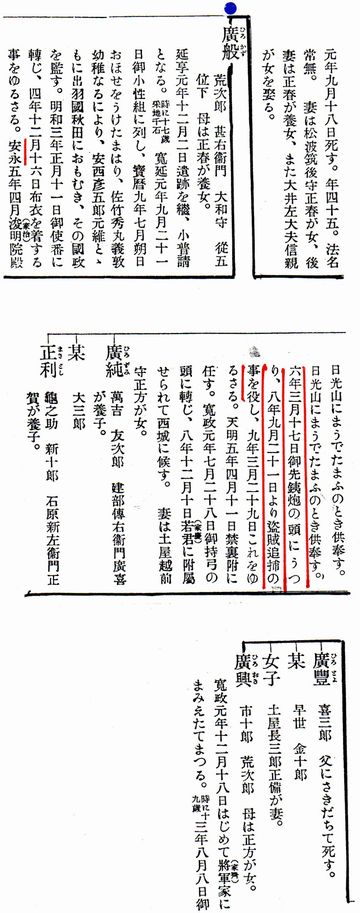 元年九月十八日死す。年四十五。法名
常無。　妻は松波筑後守正春が女、後
妻は正春が養女、また大井左大夫信親
が女を娶る。
廣般
ひろかず
荒次郎　甚右衞門　大和守　從五
位下　母は正春が養女。
延享元年十二月二日遺跡を繼、小普請
となる。時に十七歲采地千石　寬延元年九月二十一
日御小性組に列し、寶曆九年七月朔日
おほせをうけたまはり、佐竹秀丸義敦
幼稚なるにより、安西彥五郎元維とゝ
もに出羽國秋田におもむき、その國政
を監す。明和三年正月十一日御使番に
轉じ、四年十二月十六日布衣を着する
事をゆるさる。安永五年四月浚明院殿（家治）
日光山にまうでたまふのとき供奉す。
日光山にまうでたまふのとき供奉す。
六年三月十七日御先銕炮の頭にうつ
り、八年九月二十一日より盜賊追捕の
事を役し、九年三月二十九日これをゆ
るさる。天明五年四月十一日禁裏附に
任す。寬政元年七月二十八日御持弓の
頭に轉じ、八年十二月十日若君（家慶）に附屬
せられて西城に候す。　妻は土屋越前
守正方が女。
廣純
ひろずみ
萬吉　友次郎　建部傳右衞門廣喜
が養子。
某
大三郎
正利
まさとし
龜之助　新十郎　石原新左衞門正
賀が養子。
廣豐
ひろとよ
喜三郎　父にさきだちて死す。
某
早世　金十郎
女子
土屋長三郎正備が妻。
廣興
ひろおき
市十郎　荒次郎　母は正方が女。
寬政元年十二月十八日はじめて將軍家（家齊）に
まみえたてまつる。時に十九歲　三年八月八日御